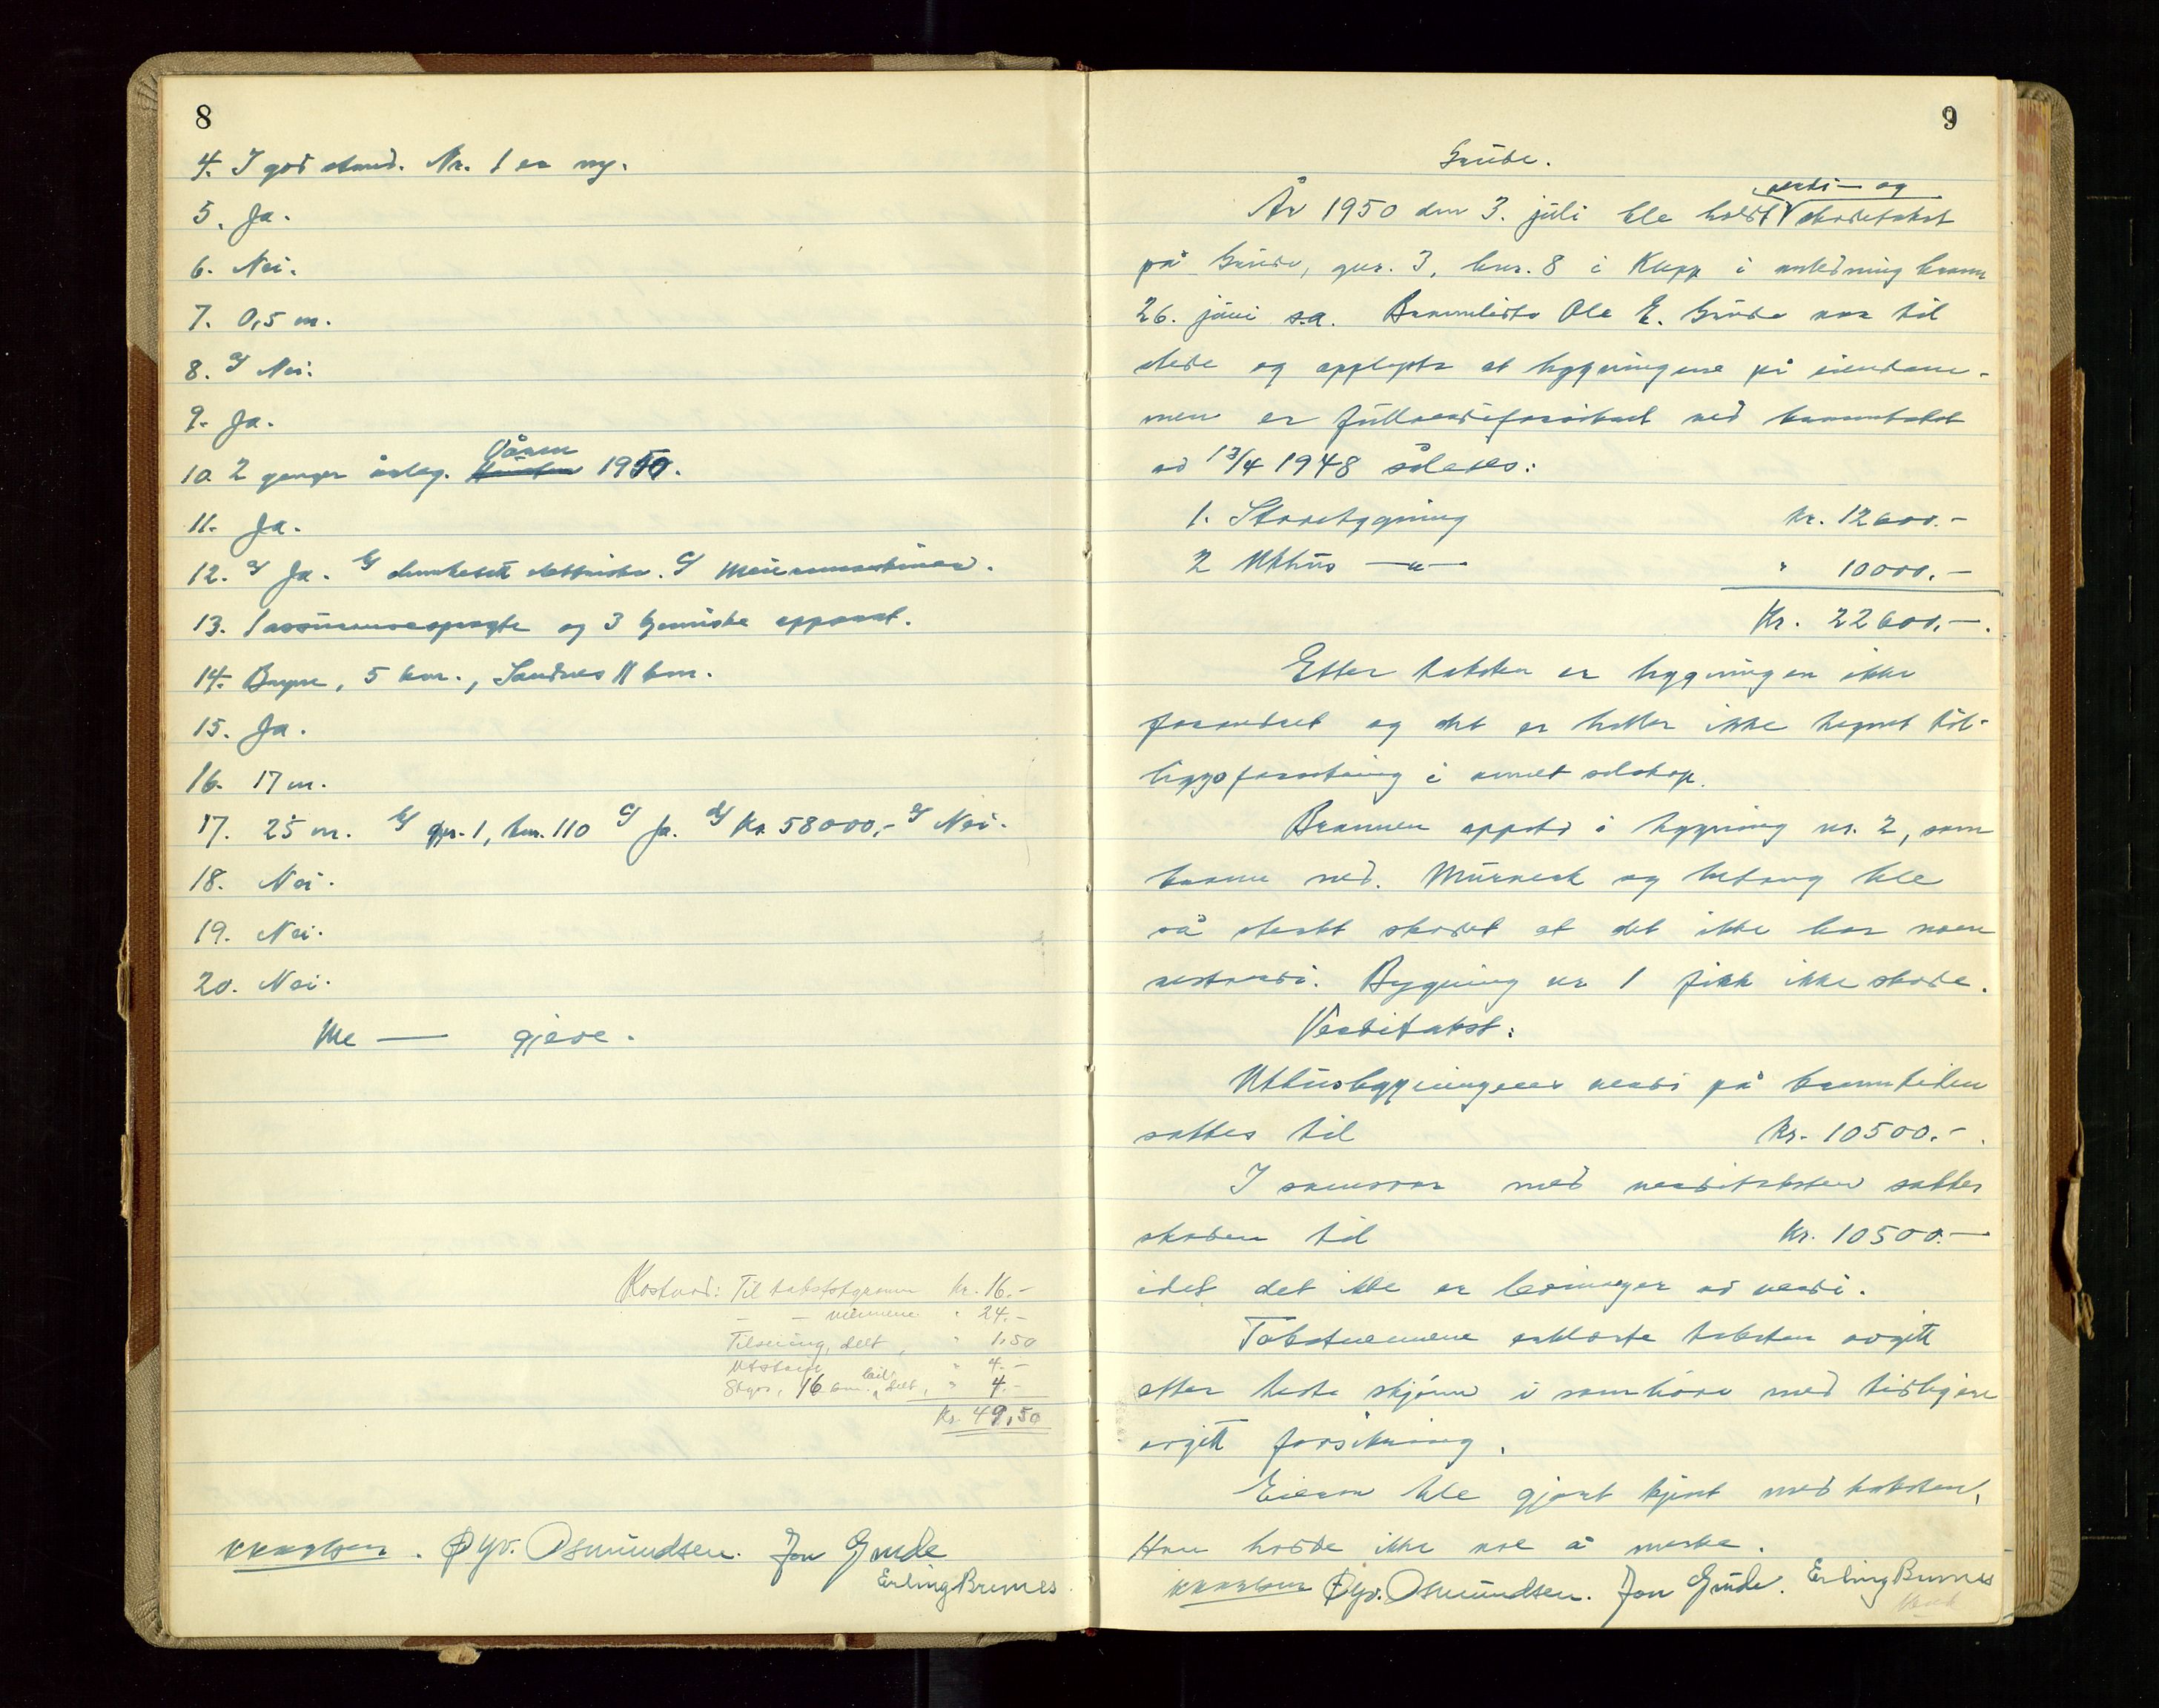 8
4. I god stand. Nr. 1 er ny.
5. Ja.
6. Nei.
7. 0,5 m.
8. a/ Nei.
9. Ja.
Våren
10. 2 ganger årleg. 1950.
11. Ja.
12. a/ Ja. b/ elektriske. c/
13. 1 assuransesprøyte og 3 kjemiske apparat.
14. Bryne, 5 km., Sandnes 11 km.
15. Ja.
16. 17 m.
17. 25 m. b/ gnr. 1, bnr. 110 c/ Ja. d/ Kr. 58000,- e/ Nei.
18. Nei.
19. Nei.
20. Nei.
Ute — gjeve.
Kostnad: Til takstbestyreren kr. 16.-
— — mennene " 24.-
Tilseiing, delt, " 1,50
Utskrift " 4.-
Skyss, 16 km. bil, delt, " 4.-
Kr. 49,50
Øyv. Osmundsen. Jon Grude
Erling Brenes
9
Grude.
verdi- og
År 1950 den 3. juli ble holdt skadetakst
på Grude, gnr. 3, bnr. 8 i Klepp i anledning brann
26. juni s.a. Brannlidte Ole E. Grude var til
stede og opplyste at bygningene på eiendom-
men er fullverdiforsikret ved branntakst
av 13/4 1948 således:
1. Stovebygning kr. 12600.-
2 Uthus —"— " 10000.-
Kr. 22600,-.
Etter taksten er bygningen ikke
forandret og det er heller ikke tegnet til-
leggsforsikring i annet selskap.
Brannen oppsto i bygning nr. 2, som
brann ned. Murverk og betong ble
så sterkt skadet at det ikke har noen
restverdi. Bygning nr 1 fikk ikke skade.
Verditakst:
Uthusbygningens verdi på branntiden
settes til kr. 10500.-.
I samsvar med verditaksten settes
skaden til kr. 10500.-
idet det ikke er levninger av verdi.
Takstmennene erklærte taksten avgitt
etter beste skjønn i samhøve med tidligere
avgitt forsikring.
Eieren ble gjort kjent med taksten.
Han hadde ikke noe å merke.
Øyv. Osmundsen. Jon Grude. Erling Brenes